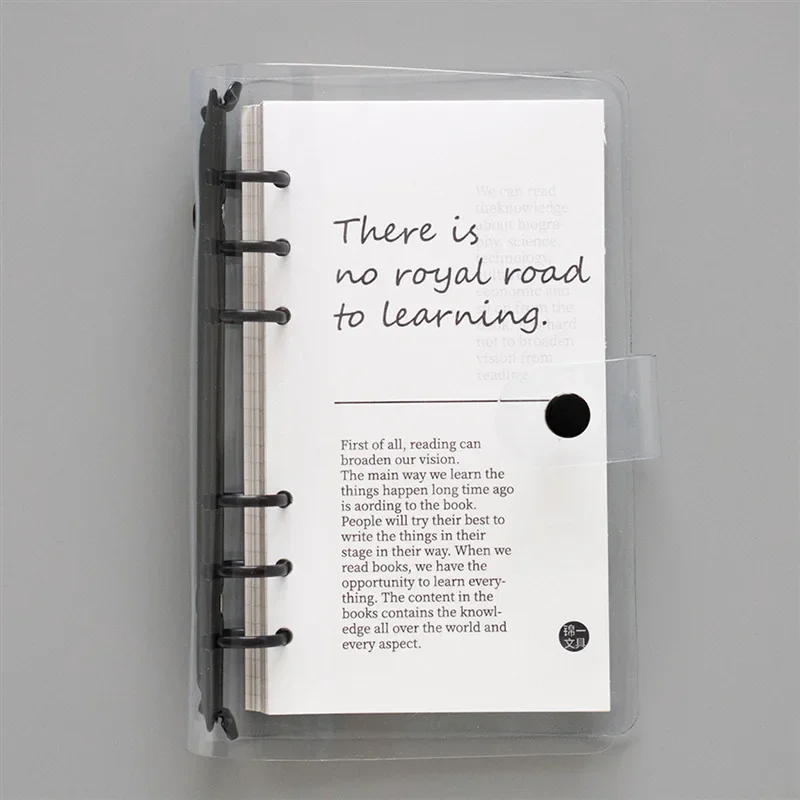 There is
no royal road
to learning.
We can read
theknowledge
about biogra-
phy, science,
technology,
economic and
hard
not to broaden
vision from
reading.
First of all, reading can
broaden our vision.
The main way we learn the
things happen long time ago
is aording to the book.
People will try their best to
write the things in their
stage in their way. When we
read books, we have the
opportunity to learn every-
thing. The content in the
books contains the knowl-
edge all over the world and
every aspect.
锦一
文具